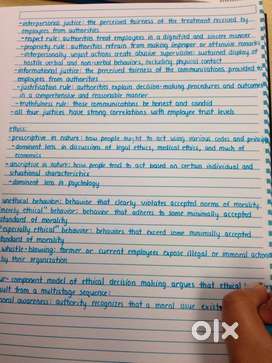 -interpersonal justice: the perceived fairness of the treatment received by
employees from authorities
-respect rule: authorities treat employees in a dignified and sincere manner
-propriety rule: authorities refrain from making improper or offensive remarks
-interpersonally unjust actions create abusive supervision: sustained display of
hostile verbal and non-verbal behaviors, excluding physical contact
-informational justice: the perceived fairness of the communications provided to
employees from authorities
-justification rule: authorities explain decision-making procedures and outcomes
in a comprehensive and reasonable manner
-truthfulness rule: those communications be honest and candid
-all four justices have strong correlations with employee trust levels
ethics
prescriptive in nature: how people ought to act using various codes and principles
-dominant lens in discussions of legal ethics, medical ethics, and much of
economics
-descriptive in nature: how people tend to act based on certain individual and
situational characteristics
-dominant lens in psychology
unethical behavior: behavior that clearly violates accepted norms of morality
"merely ethical" behavior: behavior that adheres to some minimally accepted
standard of morality
"especially ethical" behavior: behaviors that exceed some minimally accepted
standard of morality
whistle-blowing: former or current employees expose illegal or immoral actions
by their organization
-component model of ethical decision making argues that ethical
result from a multistage sequence:
moral awareness: authority recognizes that a moral issue exists
olx